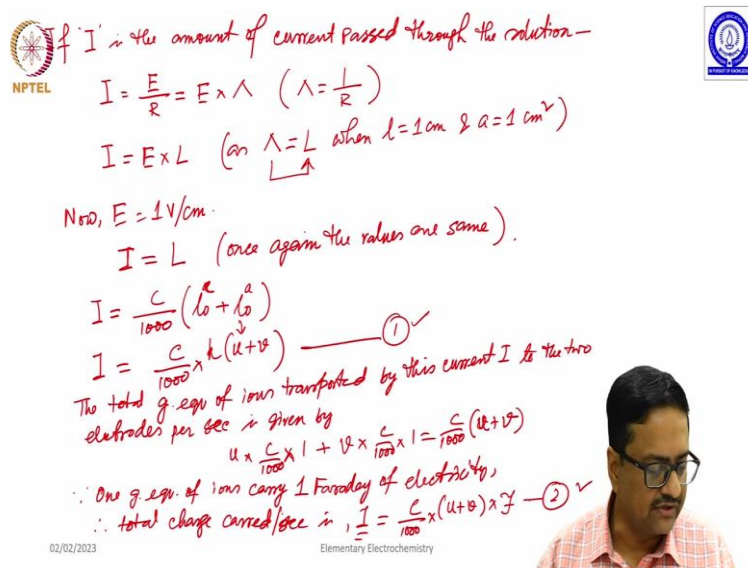 If 'I' is the amount of current passed through the solution—
NPTEL
I = E/R = E × Λ (Λ = 1/R)
I = E × L (as Λ = L when l = 1 cm & a = 1 cm²)
Now, E = 1 V/cm.
I = L (once again the values are same).
I = C/1000 (l₀ᶜ + l₀ᵃ)
I = C/1000 × k (u+v) ——— ① ✓
The total g. eqv of ions transported by this current I to the two
eletrodes per sec is given by
u × C/1000 × 1 + v × C/1000 × 1 = C/1000 (u+v)
∵ One g. eqv. of ions carry 1 Faraday of electricity,
∴ total charge carred/sec is, I = C/1000 × (u+v) × F — ② ✓
02/02/2023
Elementary Electrochemistry